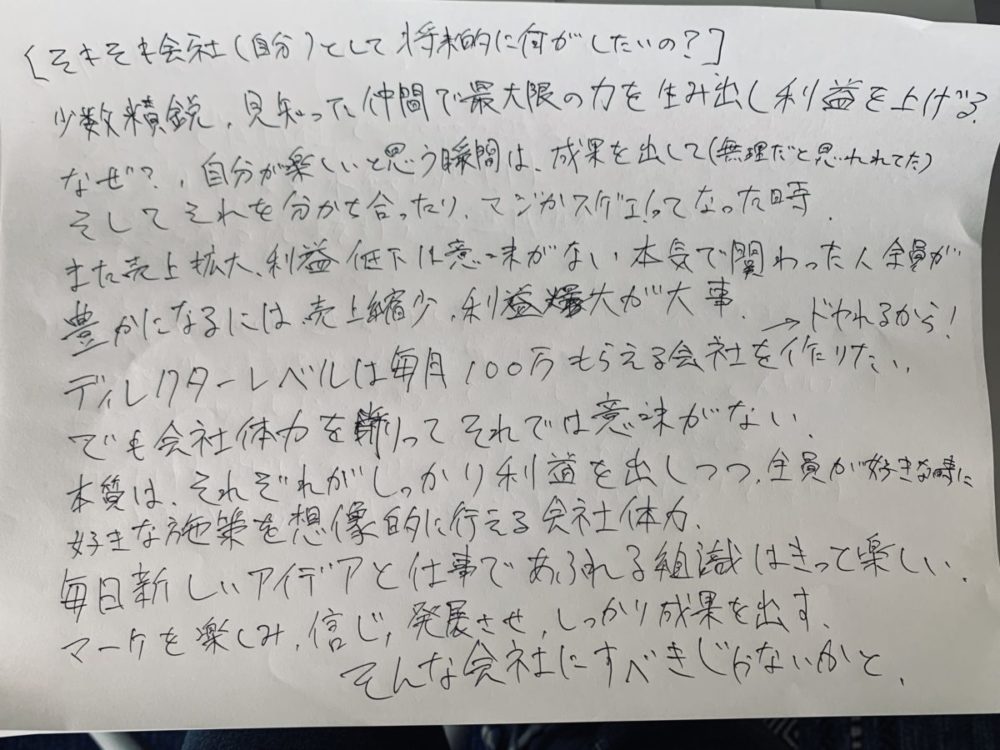 [そもそも会社(自分)として将来的に何がしたいの？]
少数精鋭、見知った仲間で最大限の力を生み出し利益を上げる、
なぜ？、自分が楽しいと思う瞬間は、成果を出して(無理だと思われてた)
そしてそれを分かち合ったり、マジかスゲェってなった時、
また売上拡大、利益低下は意味がない 本気で関わった人全員が
豊かになるには、売上縮少、利益爆大が大事、
→ドヤれるから！
ディレクターレベルは毎月100万もらえる会社を作りたい、
でも会社体力を削ってそれでは意味がない、
本質は、それぞれがしっかり利益を出しつつ、全員が好きな時に
好きな施策を想像的に行える会社体力、
毎日新しいアイデアと仕事であふれる組識はきって楽しい、
マーケを楽しみ、信じ、発展させ、しっかり成果を出す、
そんな会社にすべきじゃないかと、